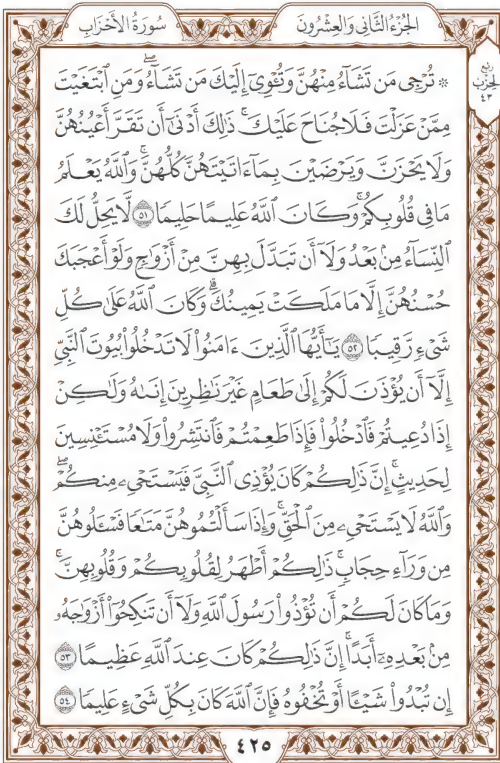 سُورَةُ الأَحْزَابِ الجُزْءُ الثَّانِي وَالعِشْرُونَ
ربع
الحزب
٤٣
۞ تُرْجِي مَن تَشَآءُ مِنْهُنَّ وَتُـْٔوِيٓ إِلَيْكَ مَن تَشَآءُۖ وَمَنِ ٱبْتَغَيْتَ
مِمَّنْ عَزَلْتَ فَلَا جُنَاحَ عَلَيْكَۚ ذَٰلِكَ أَدْنَىٰٓ أَن تَقَرَّ أَعْيُنُهُنَّ
وَلَا يَحْزَنَّ وَيَرْضَيْنَ بِمَآ ءَاتَيْتَهُنَّ كُلُّهُنَّۚ وَٱللَّهُ يَعْلَمُ
مَا فِي قُلُوبِكُمْۚ وَكَانَ ٱللَّهُ عَلِيمًا حَلِيمًا ٥١ لَّا يَحِلُّ لَكَ
ٱلنِّسَآءُ مِنۢ بَعْدُ وَلَآ أَن تَبَدَّلَ بِهِنَّ مِنْ أَزْوَٰجٍ وَلَوْ أَعْجَبَكَ
حُسْنُهُنَّ إِلَّا مَا مَلَكَتْ يَمِينُكَۗ وَكَانَ ٱللَّهُ عَلَىٰ كُلِّ
شَيْءٍ رَّقِيبًا ٥٢ يَٰٓأَيُّهَا ٱلَّذِينَ ءَامَنُوا۟ لَا تَدْخُلُوا۟ بُيُوتَ ٱلنَّبِيِّ
إِلَّآ أَن يُؤْذَنَ لَكُمْ إِلَىٰ طَعَامٍ غَيْرَ نَٰظِرِينَ إِنَىٰهُ وَلَٰكِنْ
إِذَا دُعِيتُمْ فَٱدْخُلُوا۟ فَإِذَا طَعِمْتُمْ فَٱنتَشِرُوا۟ وَلَا مُسْتَـْٔنِسِينَ
لِحَدِيثٍۚ إِنَّ ذَٰلِكُمْ كَانَ يُؤْذِي ٱلنَّبِيَّ فَيَسْتَحْيِۦ مِنكُمْۖ
وَٱللَّهُ لَا يَسْتَحْيِۦ مِنَ ٱلْحَقِّۚ وَإِذَا سَأَلْتُمُوهُنَّ مَتَٰعًا فَسْـَٔلُوهُنَّ
مِن وَرَآءِ حِجَابٍۚ ذَٰلِكُمْ أَطْهَرُ لِقُلُوبِكُمْ وَقُلُوبِهِنَّۚ
وَمَا كَانَ لَكُمْ أَن تُؤْذُوا۟ رَسُولَ ٱللَّهِ وَلَآ أَن تَنكِحُوٓا۟ أَزْوَٰجَهُۥ
مِنۢ بَعْدِهِۦٓ أَبَدًاۚ إِنَّ ذَٰلِكُمْ كَانَ عِندَ ٱللَّهِ عَظِيمًا ٥٣
إِن تُبْدُوا۟ شَيْـًٔا أَوْ تُخْفُوهُ فَإِنَّ ٱللَّهَ كَانَ بِكُلِّ شَيْءٍ عَلِيمًا ٥٤
٤٢٥